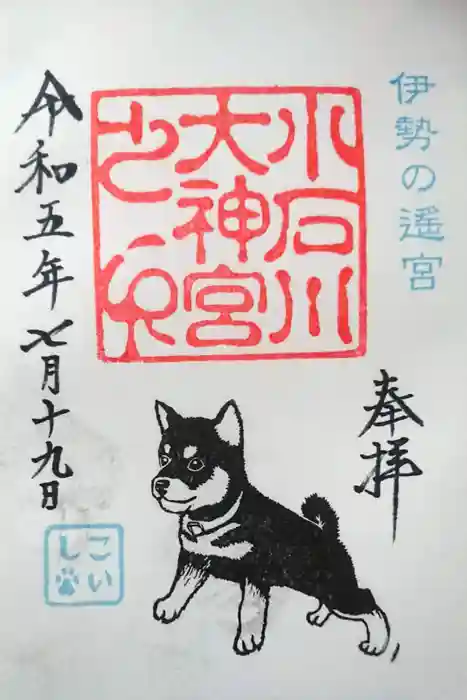 伊勢の遥宮
奉拝
小石川
大神宮
之印
令和五年七月十九日
こい
し